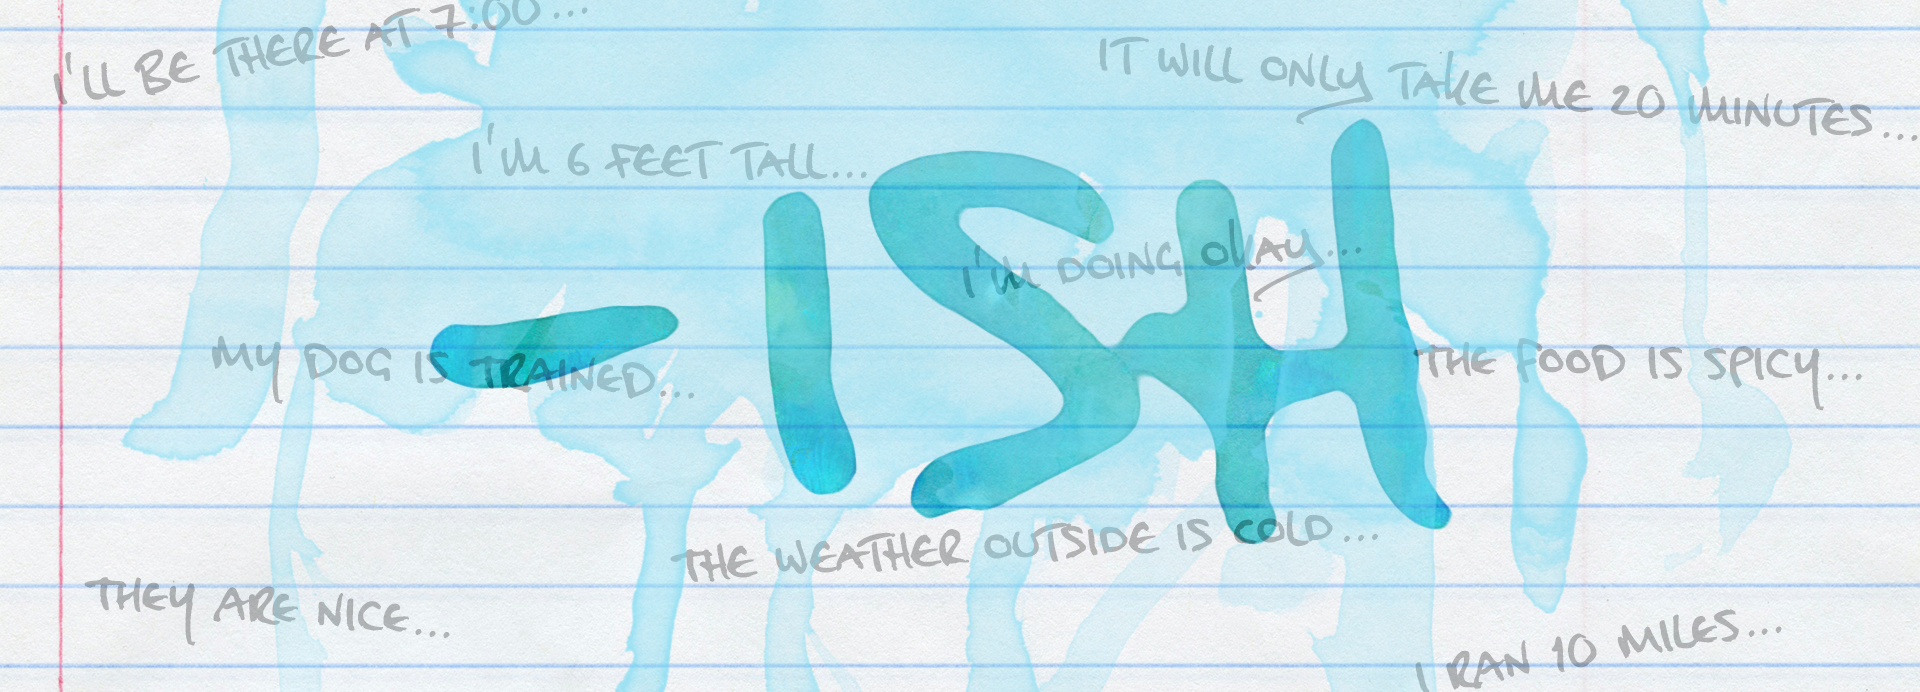 I'LL BE THERE AT 7:00...
IT WILL ONLY TAKE ME 20 MINUTES...
I'M 6 FEET TALL...
-ISH
I'M DOING OKAY...
MY DOG IS TRAINED...
THE FOOD IS SPICY...
THE WEATHER OUTSIDE IS COLD...
THEY ARE NICE...
I RAN 10 MILES...